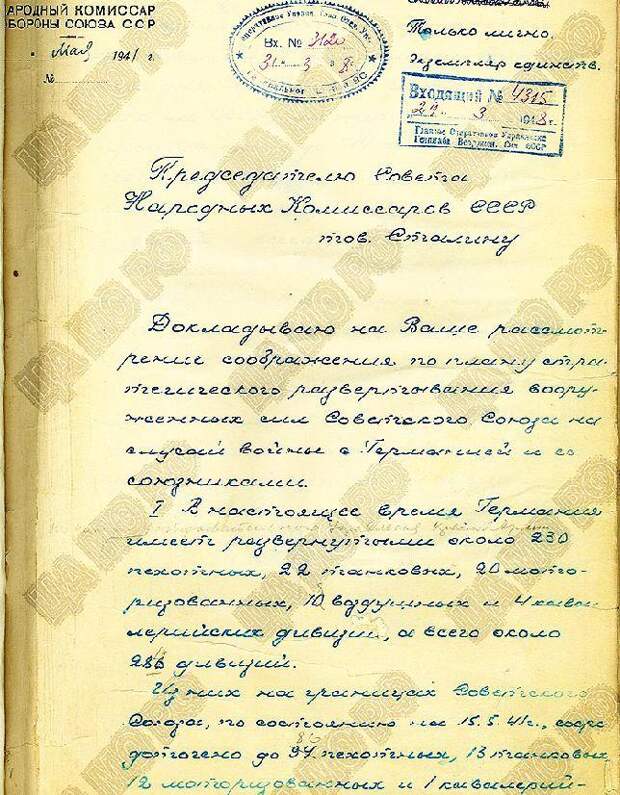 АРОДНЫЙ КОМИССАР
БОРОНЫ СОЮЗА ССР
Май 1941 г.
№
Вх. № 3120
31 3 8
Только лично.
Экземпляр единств.
Входящий № 4315
29 3 1948 г.
Главное Оперативное Управление
Генштаба Вооружен. Сил СССР
Председателю Совета
Народных Комиссаров СССР
тов. Сталину
Докладываю на Ваше рассмот-
рение соображения по плану стра-
тегического развертывания воору-
женных сил Советского Союза на
случай войны с Германией и ее
союзниками.
I В настоящее время Германия
имеет развернутыми около 230
пехотных, 22 танковых, 20 мото-
ризованных, 10 воздушных и 4 кава-
лерийских дивизий, а всего около
286 дивизий.
Из них на границах Советского
Союза, по состоянию на 15.5.41г., сосре
86
доточено до 97 пехотных, 13 танковых
12 моторизованных и 1 кавалерий-
ЦА МО РФ